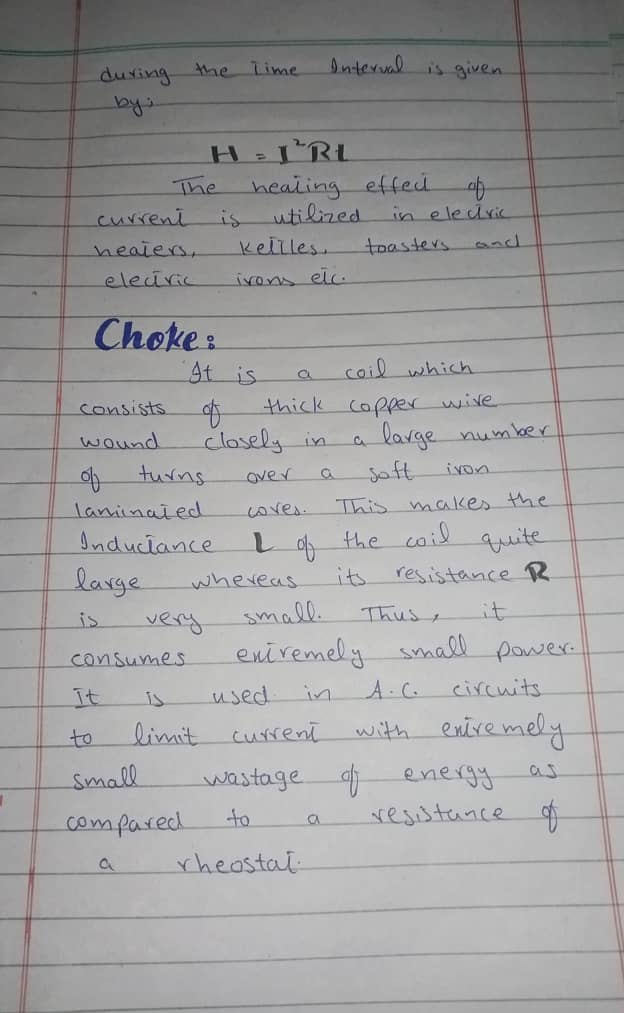 during the Time Interval is given
by:
H = I²Rt
The heating effect of
current is utilized in electric
heaters, kettles, toasters and
electric irons etc.
Choke:
It is a coil which
consists of thick copper wire
wound closely in a large number
of turns over a soft iron
laminated cores. This makes the
Inductance L of the coil quite
large whereas its resistance R
is very small. Thus, it
consumes extremely small power.
It is used in A.C. circuits
to limit current with extremely
small wastage of energy as
compared to a resistance of
a rheostat.